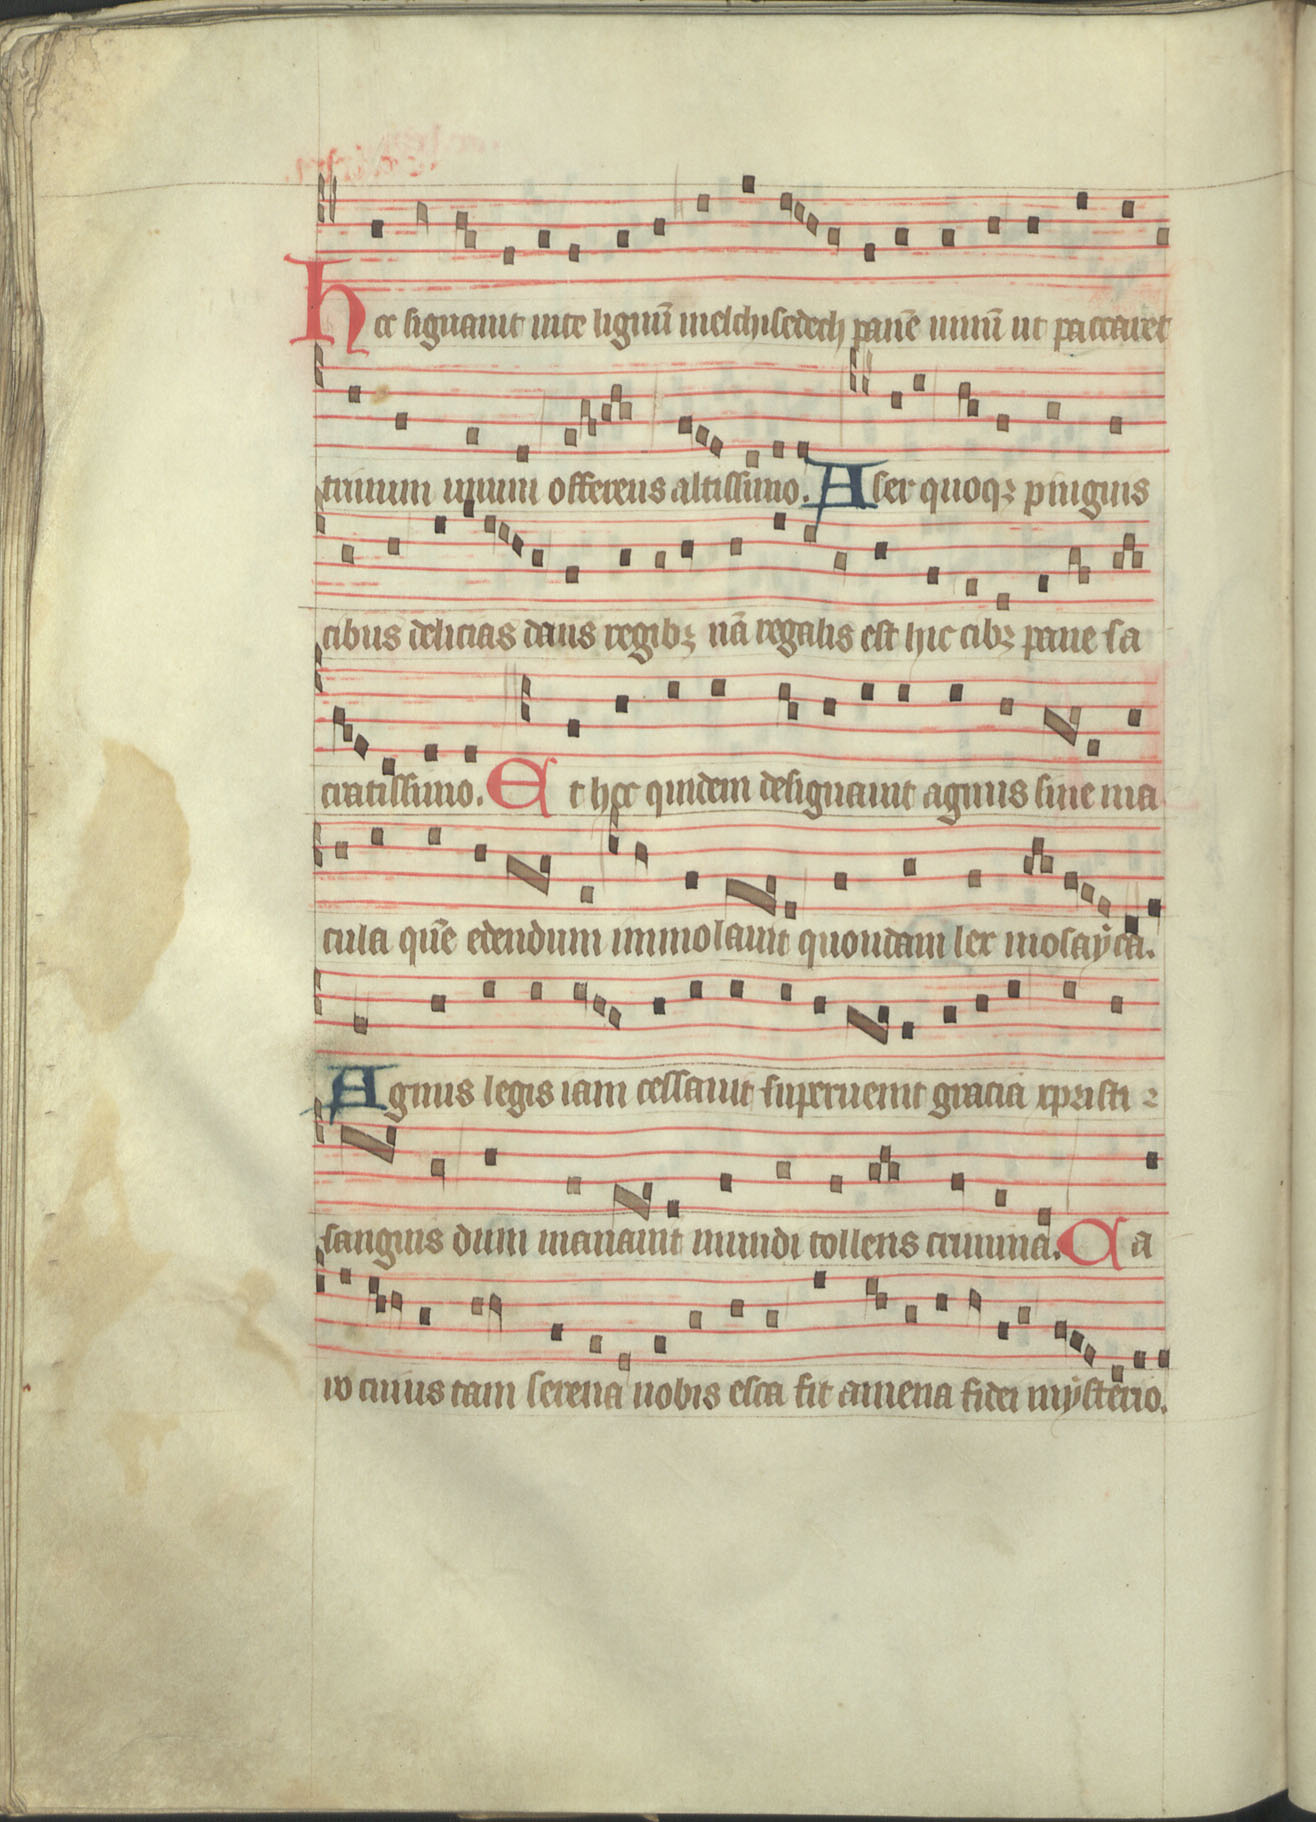 Hec signauit uite lignū melchisedech panē uinū ut paccaret
trinum unum offerens altissimo. Aser quoqꝫ pinguis
cibus delicias dans regibꝫ nā regalis est hic cibꝫ pane sa
cratissimo. Et hec quidem designauit agnus sine ma
cula quē edendum immolauit quondam lex mosayca.
Agnus legis iam cessauit superuenit gracia xpristi ⁊
sanguis dum manauit mundi tollens crimina. Ca
ro cuius tam serena nobis esca fit amena fidei mysterio.